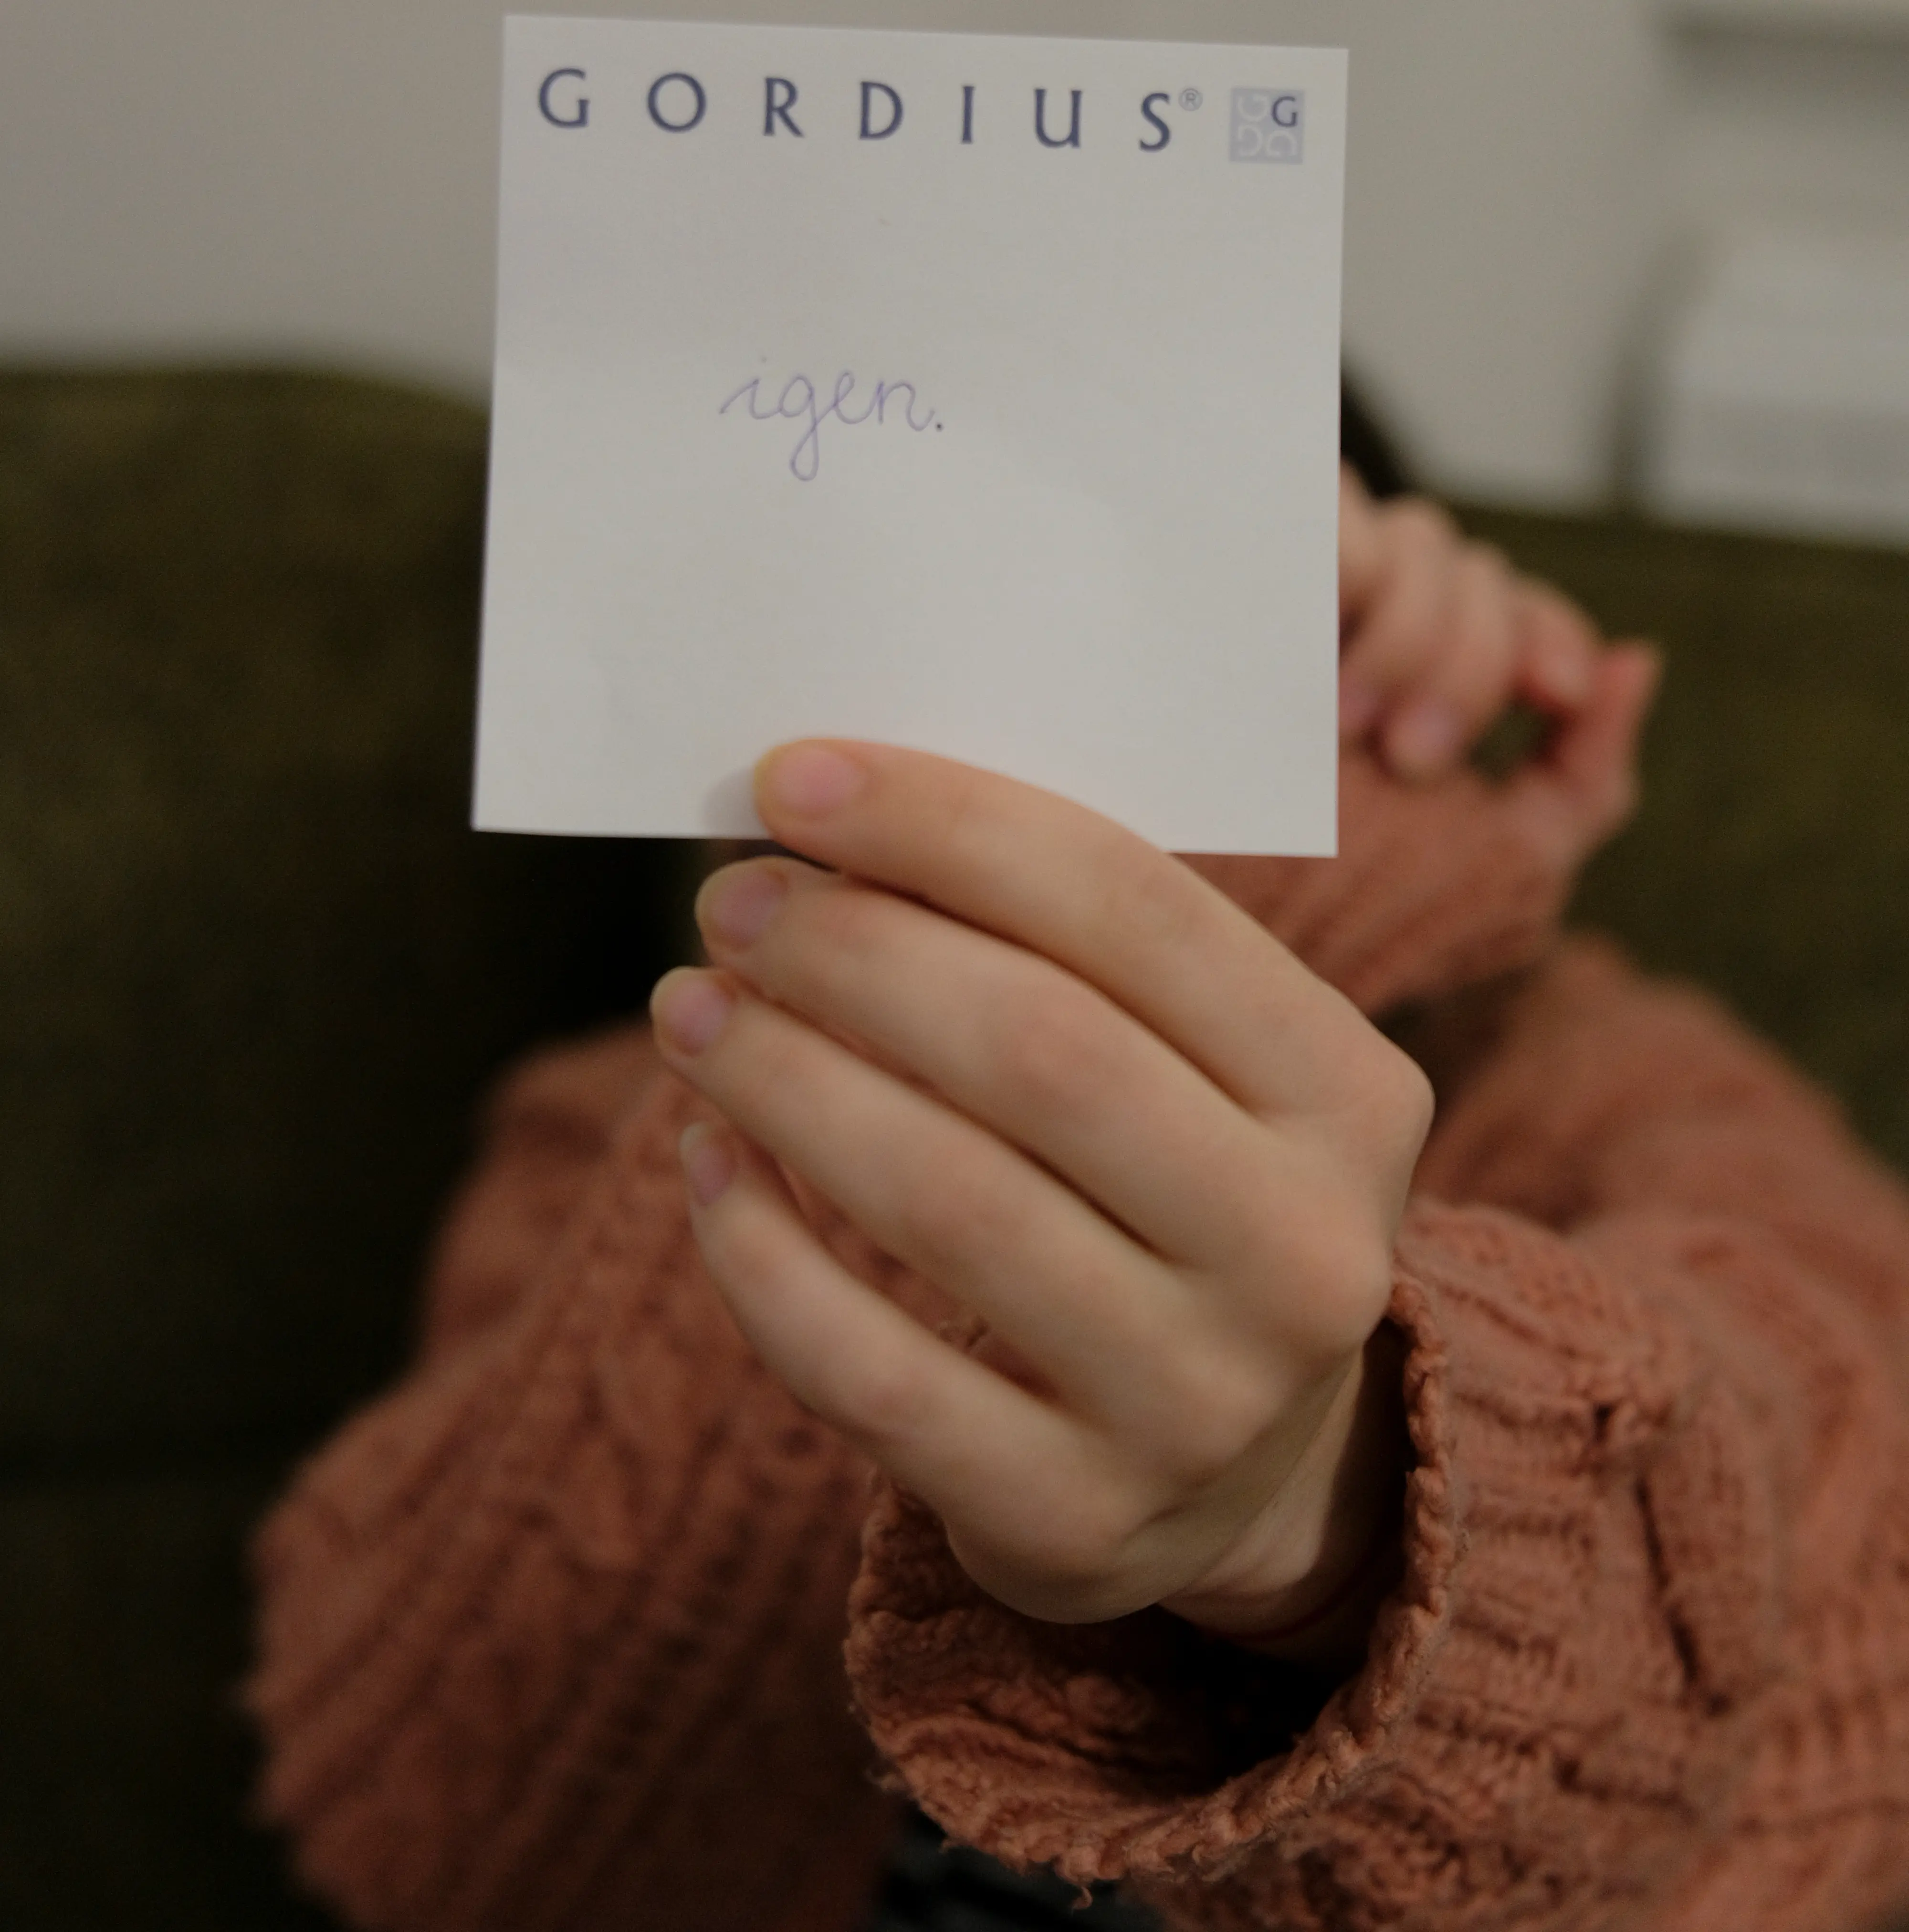 GORDIUS® G
igen.